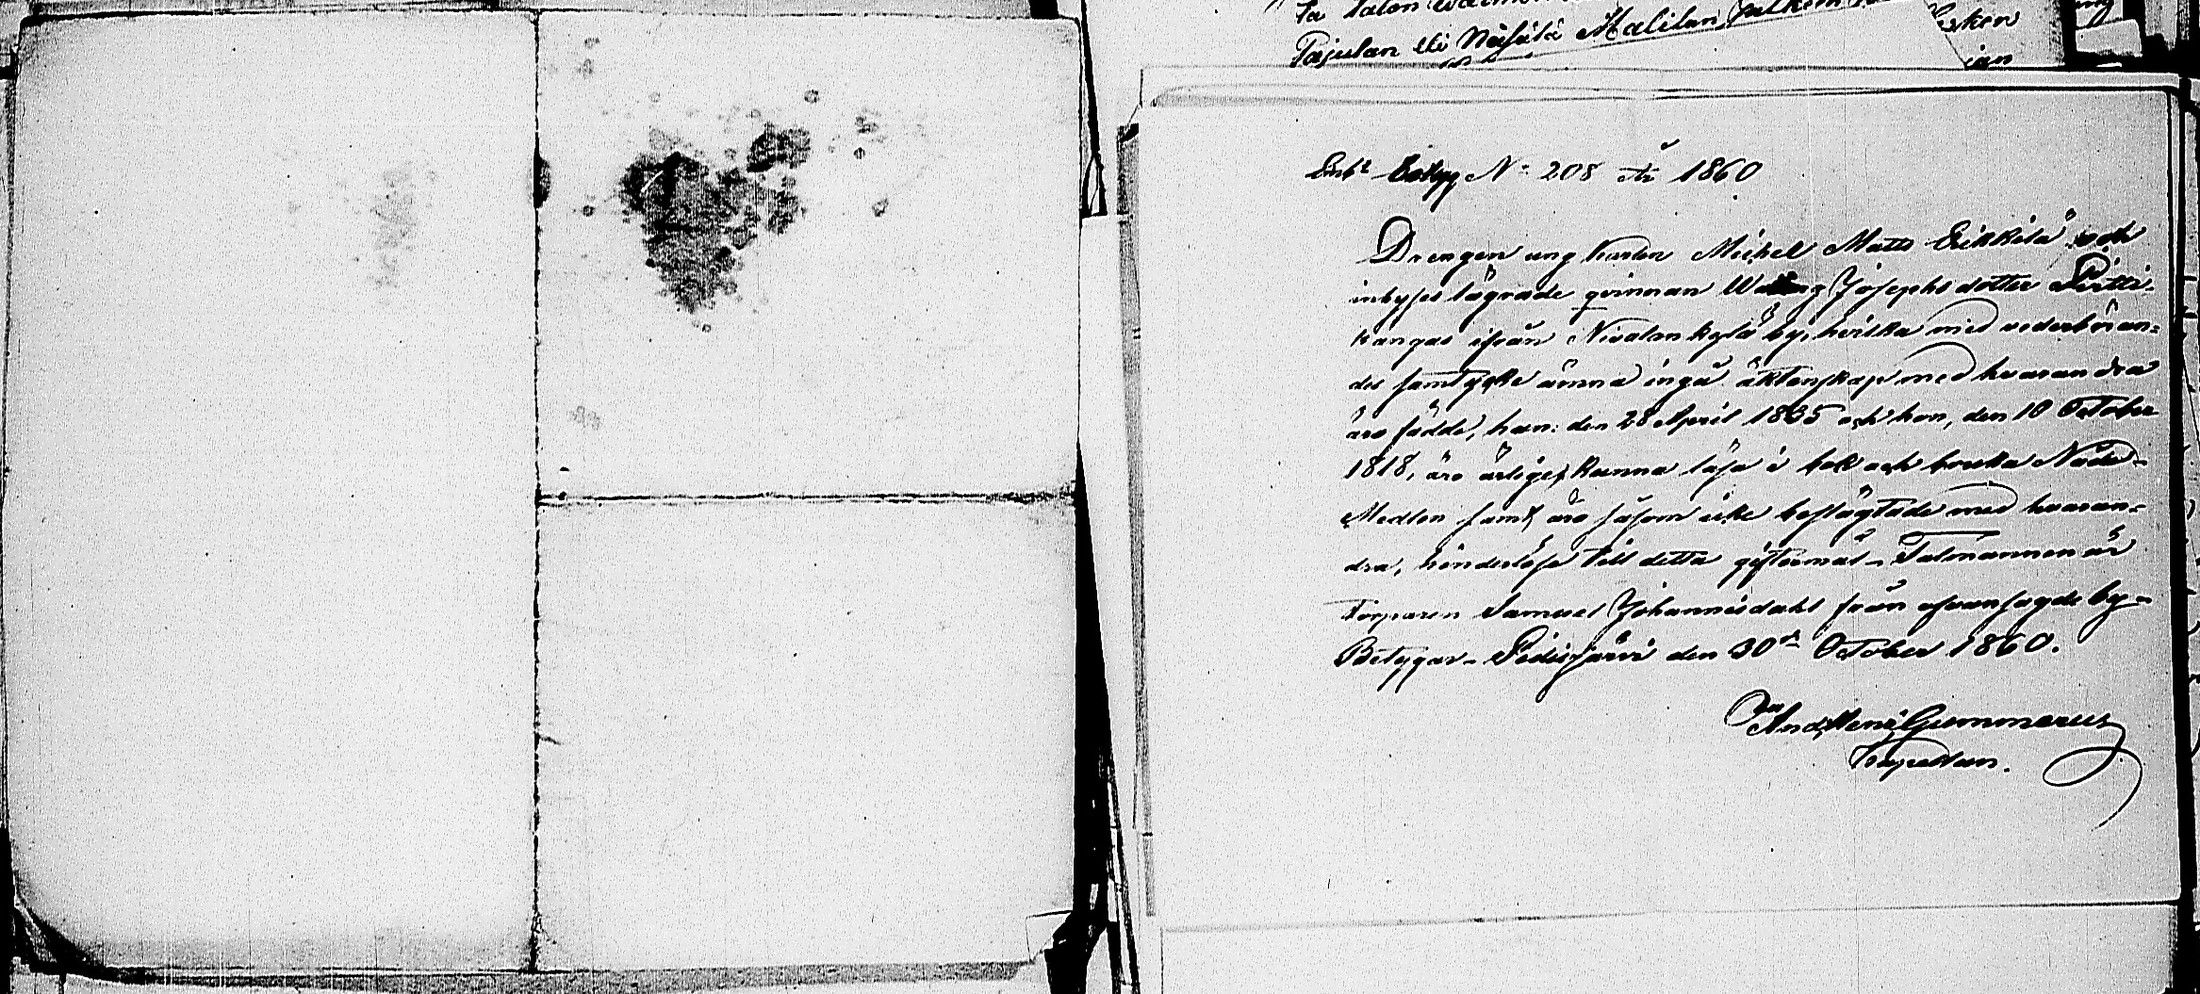 Pajulan eli Näsälä Malilan
Enl: Betyg N: 208 år 1860
Drengen ung karlen Michel Matts Erikkilä och
inhyses lägrade qvinnan Josephsdotter Pirtti-
kangas ifrån Nivalankylä by, hvilka med vederböran-
des samtycke ämna ingå äktenskap med hvarandra
äro födde, han: den 28 April 1835 och hon, den 10 October
1818, äro ärlige, kunna läsa i bok och bruka Nåde-
Medlen samt äro såsom icke beslägtade med hvaran-
dra, hinderlöse till detta giftermål. Talmannen är
Torparen Samuel Johannisdahl från ofvansagde by.
Betygar. Pidisjärvi den 30de October 1860.
And: Henr: Gummerus
Kapellan.